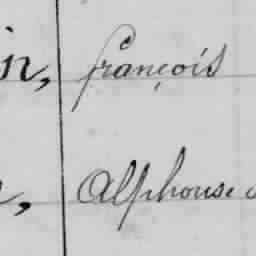 in, françois
, Alphouse